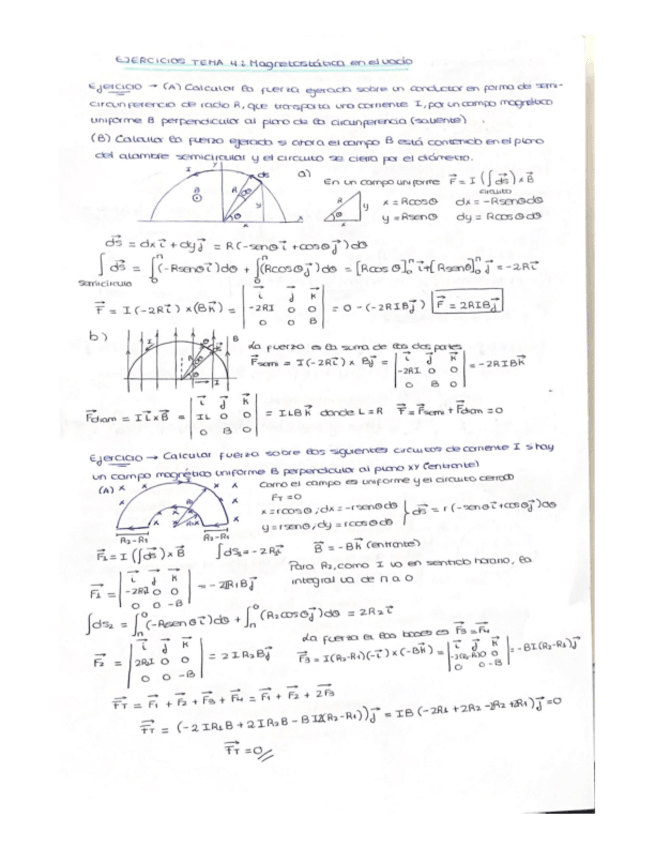 EJERCICIOS TEMA 4: Magnetostática en el vacío
Ejercicio → (A) Calcular la fuerza ejercida sobre un conductor en forma de semi-
circunferencia de radio R, que transporta una corriente I, por un campo magnético
uniforme B perpendicular al plano de la circunferencia (saliente).
(B) Calcular la fuerza ejercida si ahora el campo B está contenido en el plano
del alambre semicircular y el circuito se cierra por el diámetro.
a) En un campo uniforme F⃗ = I (∫ds⃗) × B⃗
circuito
x = Rcosθ dx = -Rsenθdθ
y = Rsenθ dy = Rcosθdθ
ds⃗ = dx i⃗ + dy j⃗ = R(-senθ i⃗ + cosθ j⃗)dθ
∫ds⃗ = ∫₀^π(-Rsenθ i⃗)dθ + ∫₀^π(Rcosθ j⃗)dθ = [Rcosθ]₀^π i⃗ + [Rsenθ]₀^π j⃗ = -2R i⃗
semicírculo
F⃗ = I(-2R i⃗) × (B k⃗) = | i⃗ j⃗ k⃗ | -2RI 0 0 | 0 0 B | = 0 - (-2RIB j⃗) F⃗ = 2RIB j⃗
b) La fuerza es la suma de las dos partes
F⃗semi = I(-2R i⃗) × B j⃗ = | i⃗ j⃗ k⃗ | -2RI 0 0 | 0 B 0 | = -2RIB k⃗
F⃗diam = I L⃗ × B⃗ = | i⃗ j⃗ k⃗ | IL 0 0 | 0 B 0 | = ILB k⃗ donde L = R F⃗ = F⃗semi + F⃗diam = 0
Ejercicio → Calcular fuerza sobre los siguientes circuitos de corriente I si hay
un campo magnético uniforme B perpendicular al plano XY (entrante)
(A) Como el campo es uniforme y el circuito cerrado
F_T = 0
x = rcosθ; dx = -rsenθdθ
y = rsenθ, dy = rcosθdθ } ds⃗ = r(-senθ i⃗ + cosθ j⃗)dθ
R₂-R₁ R₂-R₁
F⃗₁ = I(∫ds⃗) × B⃗ ∫ds₁ = -2R i⃗ B⃗ = -B k⃗ (entrante)
F⃗₁ = | i⃗ j⃗ k⃗ | -2RI 0 0 | 0 0 -B | = -2IR₁B j⃗
Para R₂, como I va en sentido horario, la
integral va de π a 0
∫ds₂ = ∫_π^0(-Rsenθ i⃗)dθ + ∫_π^0(R₂cosθ j⃗)dθ = 2R₂ i⃗
F⃗₂ = | i⃗ j⃗ k⃗ | 2RI 0 0 | 0 0 -B | = 2IR₂B j⃗
La fuerza en las bases es F⃗₃ = F⃗₄
F⃗₃ = I(R₂-R₁)(-i⃗) × (-B k⃗) = | i⃗ j⃗ k⃗ | -I(R₂-R₁) 0 0 | 0 0 -B | = -BI(R₂-R₁) j⃗
F⃗_T = F⃗₁ + F⃗₂ + F⃗₃ + F⃗₄ = F⃗₁ + F⃗₂ + 2F⃗₃
F⃗_T = (-2IR₁B + 2IR₂B - BI2(R₂-R₁)) j⃗ = IB(-2R₁ + 2R₂ - 2R₂ + 2R₁) j⃗ = 0
F⃗_T = 0